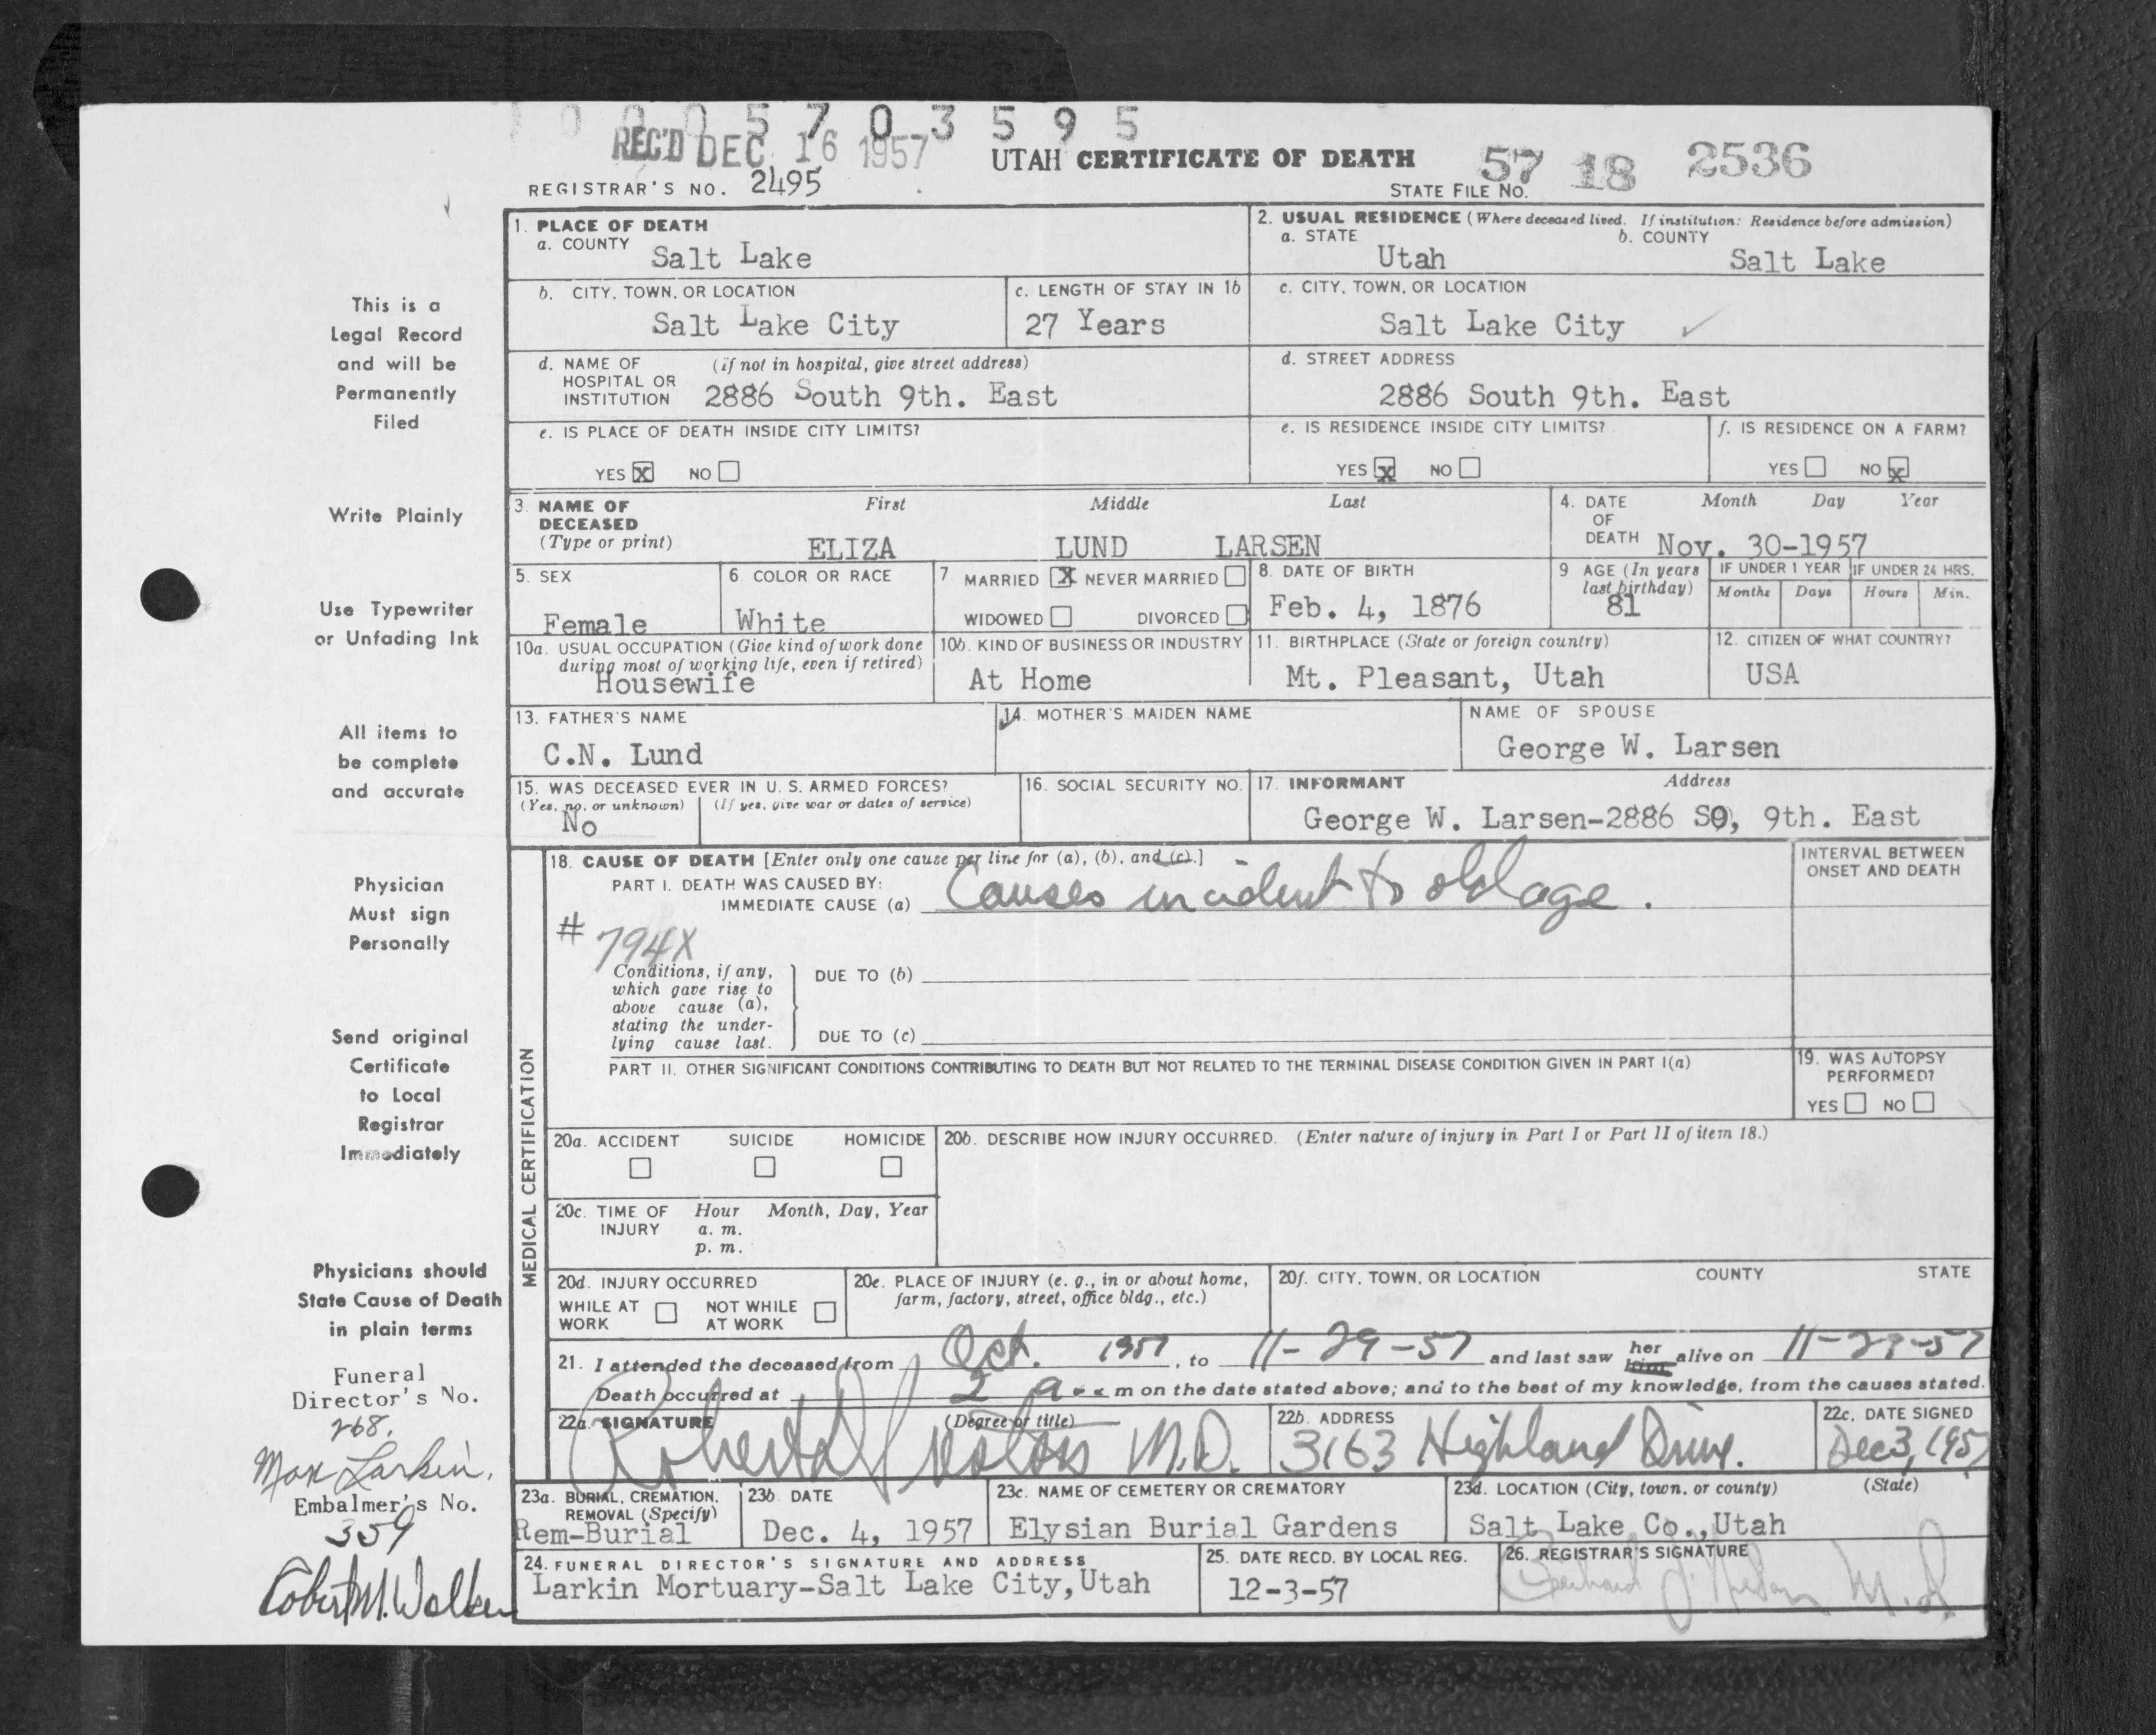 0005703595
REC'D DEC 16 1957
UTAH CERTIFICATE OF DEATH
57 18 2536
REGISTRAR'S NO. 2495
STATE FILE NO.
This is a
Legal Record
and will be
Permanently
Filed
Write Plainly
Use Typewriter
or Unfading Ink
All items to
be complete
and accurate
Physician
Must sign
Personally
Send original
Certificate
to Local
Registrar
Immediately
Physicians should
State Cause of Death
in plain terms
Funeral
Director's No.
268.
Max Larkin.
Embalmer's No.
359
Robert M. Walker
1. PLACE OF DEATH
a. COUNTY
Salt Lake
2. USUAL RESIDENCE (Where deceased lived. If institution: Residence before admission)
a. STATE
Utah
b. COUNTY
Salt Lake
b. CITY, TOWN, OR LOCATION
Salt Lake City
c. LENGTH OF STAY IN 1b
27 Years
c. CITY, TOWN, OR LOCATION
Salt Lake City
d. NAME OF (if not in hospital, give street address)
HOSPITAL OR
INSTITUTION 2886 South 9th. East
d. STREET ADDRESS
2886 South 9th. East
e. IS PLACE OF DEATH INSIDE CITY LIMITS?
YES X NO
e. IS RESIDENCE INSIDE CITY LIMITS?
YES X NO
f. IS RESIDENCE ON A FARM?
YES NO X
3. NAME OF First Middle Last
DECEASED
(Type or print) ELIZA LUND LARSEN
4. DATE Month Day Year
OF
DEATH Nov. 30-1957
5. SEX
Female
6. COLOR OR RACE
White
7. MARRIED X NEVER MARRIED
WIDOWED DIVORCED
8. DATE OF BIRTH
Feb. 4, 1876
9 AGE (In years
last birthday)
81
IF UNDER 1 YEAR IF UNDER 24 HRS.
Months Days Hours Min.
10a. USUAL OCCUPATION (Give kind of work done
during most of working life, even if retired)
Housewife
10b. KIND OF BUSINESS OR INDUSTRY
At Home
11. BIRTHPLACE (State or foreign country)
Mt. Pleasant, Utah
12. CITIZEN OF WHAT COUNTRY?
USA
13. FATHER'S NAME
C.N. Lund
14. MOTHER'S MAIDEN NAME
NAME OF SPOUSE
George W. Larsen
15. WAS DECEASED EVER IN U. S. ARMED FORCES?
(Yes, no, or unknown) (If yes, give war or dates of service)
No
16. SOCIAL SECURITY NO.
17. INFORMANT Address
George W. Larsen-2886 SO, 9th. East
MEDICAL CERTIFICATION
18. CAUSE OF DEATH [Enter only one cause per line for (a), (b), and (c).]
PART I. DEATH WAS CAUSED BY:
IMMEDIATE CAUSE (a) Causes incident to old age.
INTERVAL BETWEEN
ONSET AND DEATH
# 794X
Conditions, if any,
which gave rise to
above cause (a),
stating the under-
lying cause last.
DUE TO (b)
DUE TO (c)
PART II. OTHER SIGNIFICANT CONDITIONS CONTRIBUTING TO DEATH BUT NOT RELATED TO THE TERMINAL DISEASE CONDITION GIVEN IN PART I(a)
19. WAS AUTOPSY
PERFORMED?
YES NO
20a. ACCIDENT SUICIDE HOMICIDE
20b. DESCRIBE HOW INJURY OCCURRED. (Enter nature of injury in Part I or Part II of item 18.)
20c. TIME OF Hour Month, Day, Year
INJURY a. m.
p. m.
20d. INJURY OCCURRED
WHILE AT NOT WHILE
WORK AT WORK
20e. PLACE OF INJURY (e. g., in or about home,
farm, factory, street, office bldg., etc.)
20f. CITY, TOWN, OR LOCATION COUNTY STATE
21. I attended the deceased from Oct. 1957, to 11-29-57 and last saw her him alive on 11-29-57
Death occurred at 2 a.m on the date stated above; and to the best of my knowledge, from the causes stated.
22a. SIGNATURE (Degree or title)
Robert M.D.
22b. ADDRESS
3163 Highland Drive.
22c. DATE SIGNED
Dec 3, 1957
23a. BURIAL, CREMATION,
REMOVAL (Specify)
Rem-Burial
23b. DATE
Dec. 4, 1957
23c. NAME OF CEMETERY OR CREMATORY
Elysian Burial Gardens
23d. LOCATION (City, town, or county) (State)
Salt Lake Co., Utah
24. FUNERAL DIRECTOR'S SIGNATURE AND ADDRESS
Larkin Mortuary-Salt Lake City, Utah
25. DATE RECD. BY LOCAL REG.
12-3-57
26. REGISTRAR'S SIGNATURE
M.D.